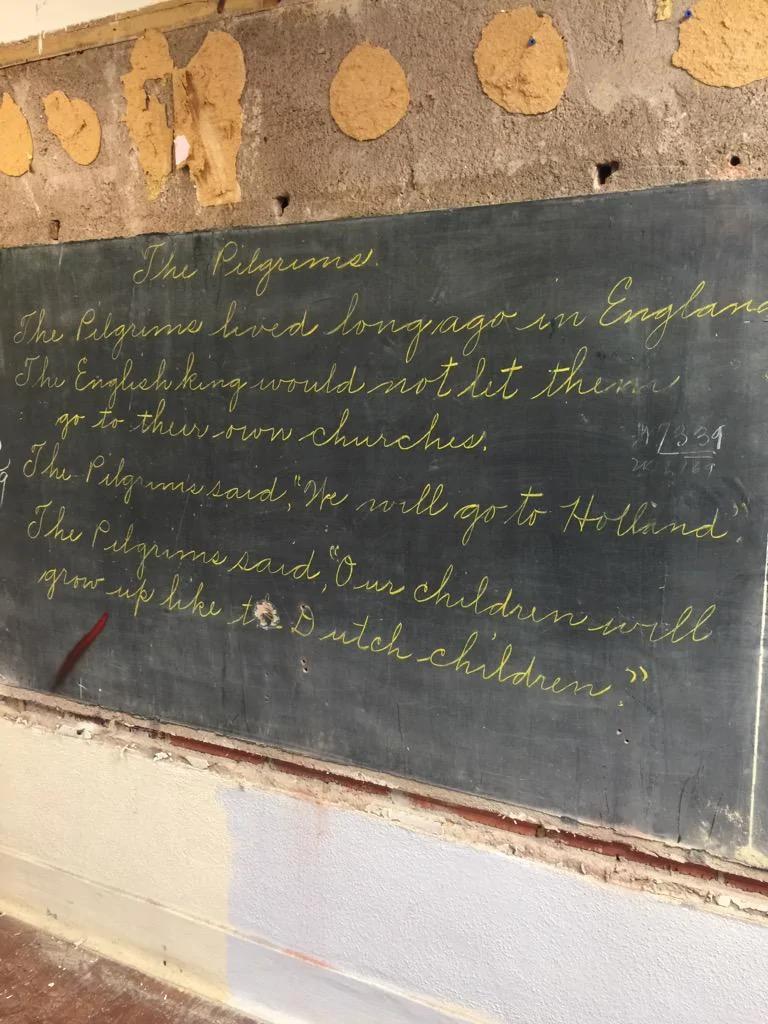 The Pilgrims.
The Pilgrims lived long ago in England
The English king would not let them
go to their own churches.
The Pilgrims said, "We will go to Holland".
The Pilgrims said, "Our children will
grow up like to Dutch children."
7339